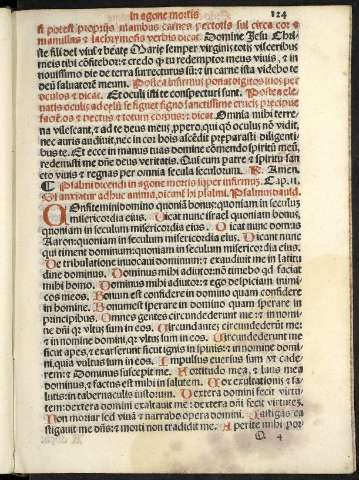 In agone mortis 124
si potest proprijs manibus carnes pectoris sui circa cor &
mamillas & lachrymosis verbis dicat. Domine Jesu Chri-
ste fili dei viui & beate Marie semper virginis totis visceribus
meis tibi cōfiteor: & credo ꝙ tu redemptor meus viuis, & in
nouissimo die de terra surrecturus sū: & in carne ista videbo te
deū saluatorē meum. Postea infirmus ponat digitos suos per
oculos & dicat. Et oculi isti te conspecturi sunt. Postea ele-
natis oculis ad celū se signet signo sanctissime crucis precipue
faciē os & pectus & totum corpus: & dicat. Omnia mihi terre-
na vilescant, & ad te deus meus
nec auris audiuit, nec in cor hōis ascēdit preparasti diligenti-
bus te. Et ecce in manus tuas domine cōmendo spiritū meū,
redemisti me dñe deus veritatis. Qui cum patre & spiritu san-
cto viuis & regnas per omnia secula seculorum. R. Amen.
¶ Psalmi dicendi in agone mortis super infirmum. Cap. ij.
Si anxiatur adhuc anima, dicant hi psalmi. Psalmus dauid.
COnfitemini domino quoniā bonus: quoniam in seculum
misericordia eius. Dicat nunc israel quoniam bonus,
quoniam in seculum misericordia eius. Dicat nunc domus
Aaron: quoniam in seculum misericordia eius. Dicant nunc
qui timent dominum: quoniam in seculum misericordia eius.
De tribulatione inuocaui dominum: & exaudiuit me in latitu
dine dominus. Dominus mihi adiutor: nō timebo qd faciat
mihi homo. Dominus mihi adiutor: & ego despiciam inimi-
cos meos. Bonum est confidere in domino quam confidere
in homine. Bonum est sperare in domino quam sperare in
principibus. Omnes gentes circumdederunt me: & in nomi-
ne dñi qr vltus sum in eos. Circundantes circundederūt me:
& in nomine domini, qr vltus sum in eos. Circundederunt me
sicut apes, & exarserunt sicut ignis in spinis: & in nomine domi-
ni, quia vltus sum in eos. Impulsus euersus sum vt cade-
rem: & Dominus suscepit me. Fortitudo mea, & laus mea
dominus, & factus est mihi in salutem. Vox exultationis & sa-
lutis: in tabernaculis iustorum. Dextera domini fecit virtu-
tem: dextera domini exaltauit me: dextera dñi fecit virtutem.
Non moriar sed viuā & narrabo opera domini. Castigās ca-
stigauit me dñs: & morti non tradidit me. Aperite mihi por-
Q 4